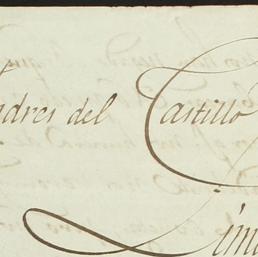 ndres del Castillo
Lima